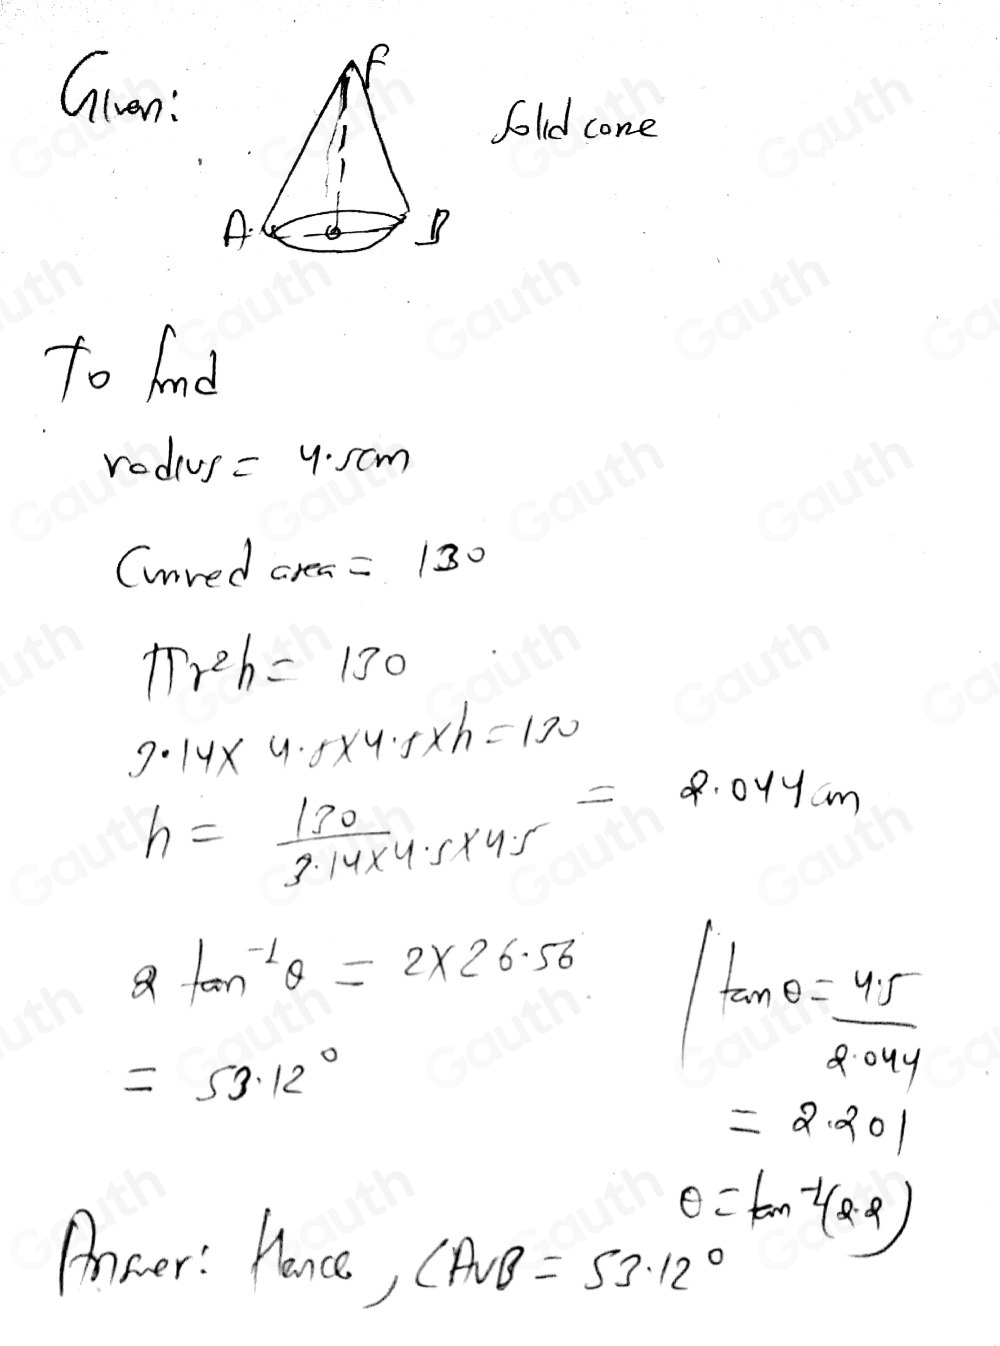 Given:
F
Solid cone
A
B
To find
radius = 4.5cm
Curved area = 130
πr²h = 130
3.14 x 4.5x4.5xh = 130
h = 130 / 3.14x4.5x4.5 = 2.044cm
2 tan⁻¹θ = 2x26.56
= 53.12°
tan θ = 4.5 / 2.044
= 2.201
θ = tan⁻¹(2.2)
Answer: Hence, ∠AVB = 53.12°
Gauth